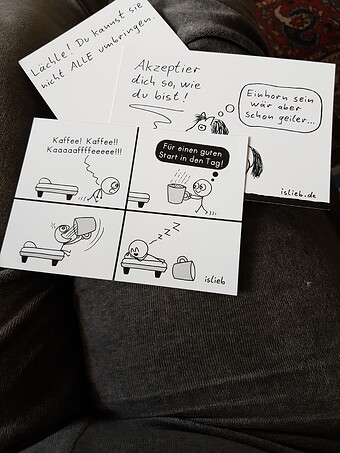 Lächle! Du kannst sie
nicht ALLE umbringen.
Akzeptier
dich so, wie
du bist!
Einhorn sein
wär aber
schon geiler...
islieb.de
Kaffee! Kaffee!!
Kaaaaaffffeeeeee!!!
Für einen guten
Start in den Tag!
z z z
islieb